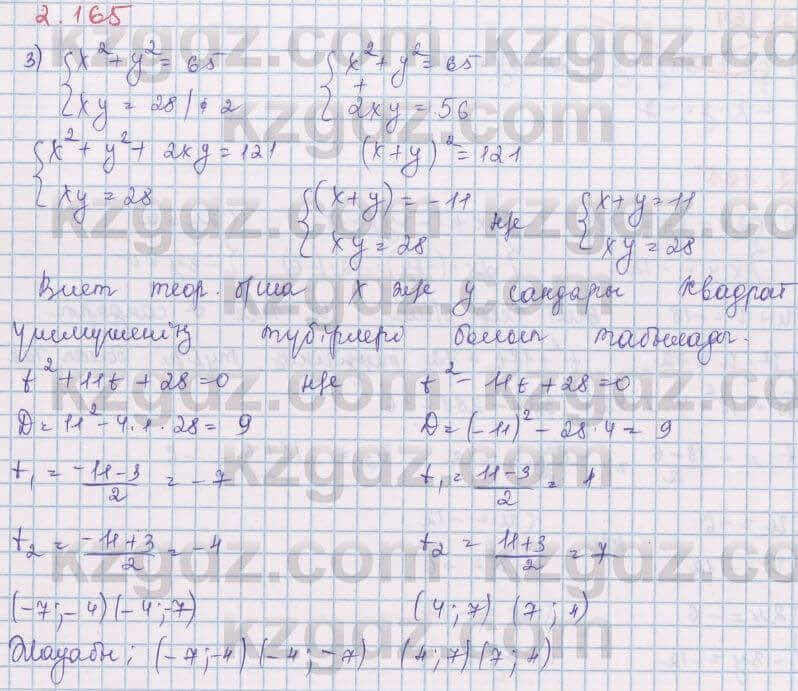 2.165
3) { x² + y² = 65   { x² + y² = 65
{ xy = 28 | • 2   + { 2xy = 56
{ x² + y² + 2xy = 121   (x+y)² = 121
{ xy = 28   { (x+y) = -11   нже   { x+y = 11
{ xy = 28   { xy = 28
Виет теор. б/ша x және y сандары квадрат
үшмүшенің түбірлері болып табылады.
t² + 11t + 28 = 0   нже   t² - 11t + 28 = 0
D = 11² - 4·1·28 = 9   D = (-11)² - 28·4 = 9
t₁ = (-11-3)/2 = -7   t₁ = (11-3)/2 = 4
t₂ = (-11+3)/2 = -4   t₂ = (11+3)/2 = 7
(-7; -4) (-4; -7)   (4; 7) (7; 4)
Жауабы; (-7; -4) (-4; -7) (4; 7) (7; 4)
kzgdz.com